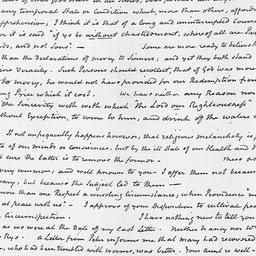 any Temporal State or Condition which more than others, affords
apprehension, I think it is that of a long and uninterrupted Course
for it is said "if ye be without chastisement, whereof all are Par
ds, and not Sons". — Some are more ready to believe th
than the declarations of mercy to Sinners; and yet they both stand
ine veracity. Such Persons should recollect, that if God was more
to mercy, he would not have provided for our Redemption from
ing Price which it cost. We have neither any Reason nor
the Sincerity with which The Lord our Righteousness
without Exception, to come to him, and drink of the waters o
It not unfrequently happens however, that religious melancholy is,
te of our minds or consciences, but by the ill State of our Health and
ove the latter is to remove the former —
very common, and well known to you. I offer them not because
ary, but because the Subject led to them —
more than one Respect a consoling Circumstance, when Providence
at peace with us". I approve of your Disposition to cultivate pea
Circumspection. I have nothing new to tell you
as we were at the Date of my last Letter. Neither Nancy nor W
Rye. a Letter from Peter informs me that may had recovered
r, who had been troubled with worms, was better. Your aunt is well